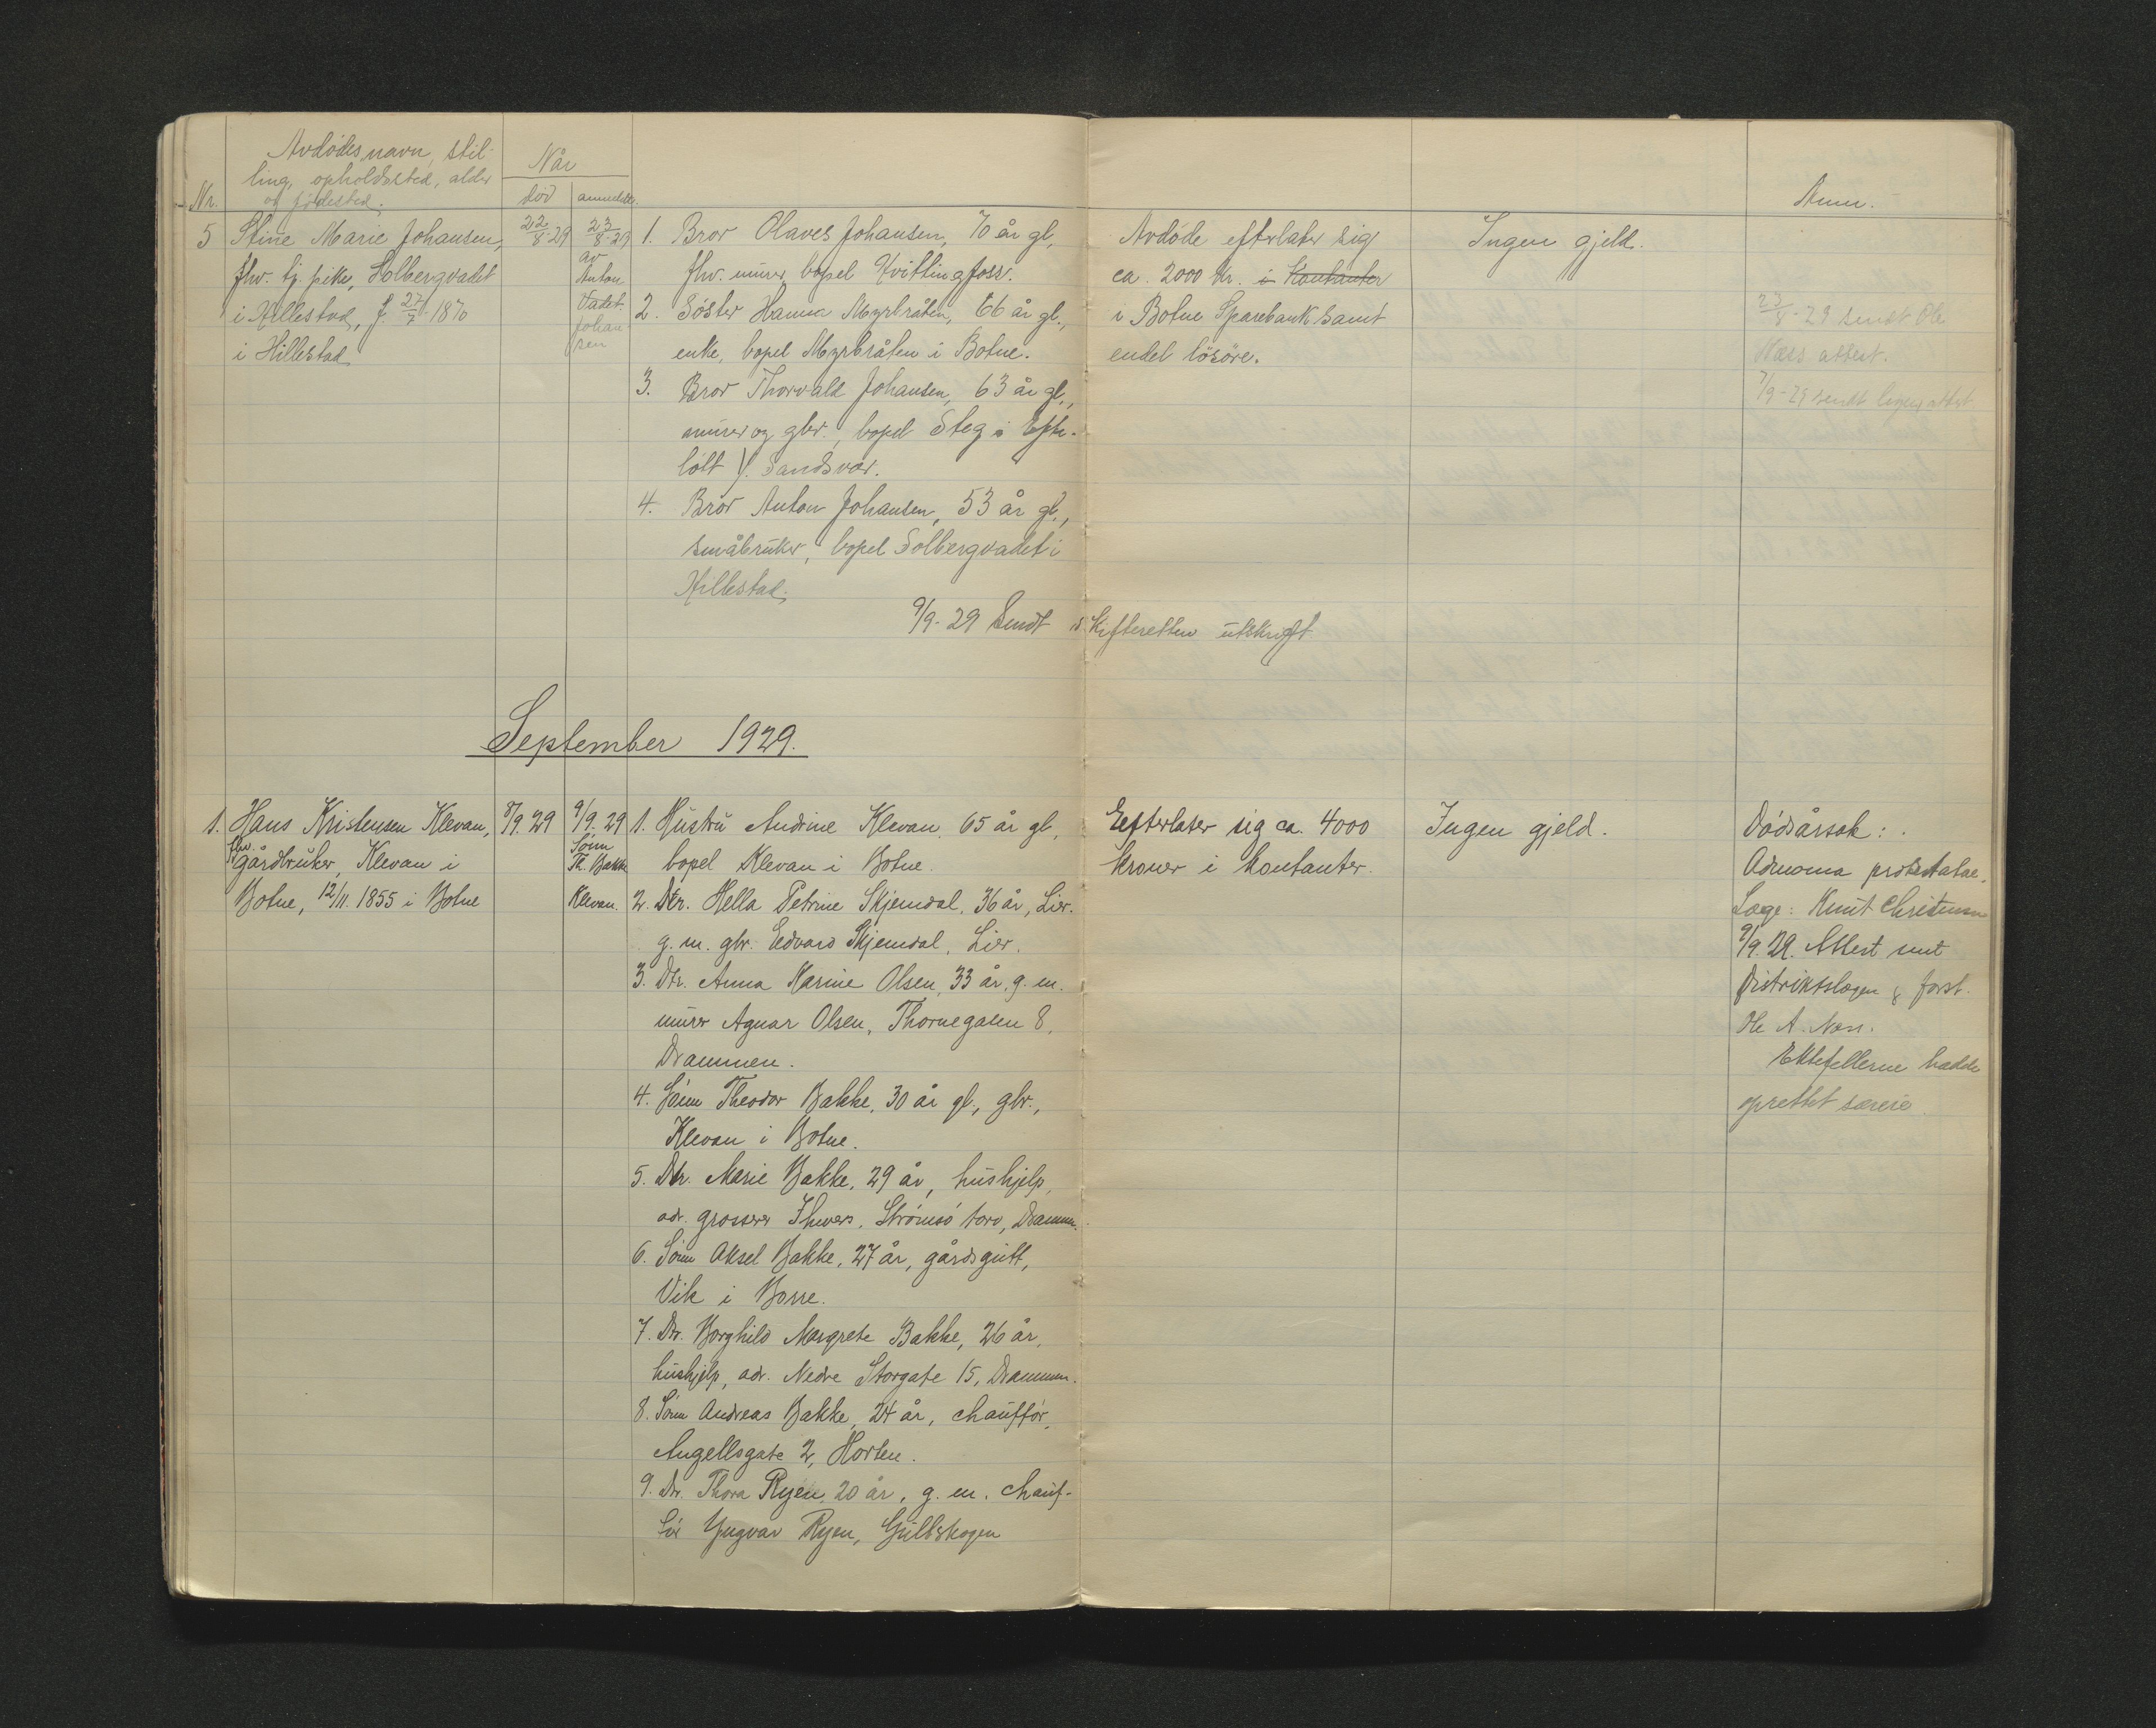 Avdødes navn, stil-
ling, opholdssted, alder
og fødested.
Nr.
Når
død
anmeldt.
Anm.
5
Stine Marie Johansen,
fhv. tj. pike, Solbergvadet
i Hillestad, f. 27/7 1870
i Hillestad
22/8-29
23/8-29
av
Anton
Vadet
Johan
sen
1. Bror Olaves Johansen, 70 år gl.,
fhv. murer, bopel Hvittingfoss.
2. Søster Hanna Myrbråten, 66 år gl.,
enke, bopel Myrbråten i Botne.
3. Bror Thorvald Johansen, 63 år gl.,
murer og gbr., bopel Steg i Efte-
løtt, Sandsvær.
4. Bror Anton Johansen, 53 år gl.,
småbruker, bopel Solbergvadet i
Hillestad.
9/9-29 Sendt skifteretten utskrift
Avdøde efterlater sig
ca. 2000 kr. i kontanter
i Botne Sparebank samt
endel løsøre.
Ingen gjeld.
23/8-29 sendt Ole
Næss attest.
7/9-29 sendt attest
September 1929.
1.
Hans Kristensen Klevan,
fhv.
gårdbruker, Klevan i
Botne, 12/11. 1855 i Botne
8/9. 29
9/9. 29
Sønn
Th. Bakke
Klevan.
1. Hustru Andrine Klevan, 65 år gl.,
bopel Klevan i Botne.
2. Dtr. Hella Petrine Skjemdal, 36 år, Lier.
g. m. gbr. Edvard Skjemdal, Lier.
3. Dtr. Anna Karine Olsen, 33 år, g. m.
murer Agnar Olsen, Thornegaten 8,
Drammen.
4. Sønn Theodor Bakke, 30 år gl., gbr.,
Klevan i Botne.
5. Dtr. Marie Bakke, 29 år, hushjelp,
adr. grosserer Strømsø torv, Dramm.
6. Sønn Aksel Bakke, 27 år, gårdsgutt,
Vik i Borre.
7. Dtr. Borghild Margrete Bakke, 26 år,
hushjelp, adr. Nedre Storgate 15, Drammen.
8. Sønn Andreas Bakke, 24 år, chauffør,
Angellsgate 2, Horten.
9. Dtr. Thora Ryen, 20 år, g. m. chauf-
før Yngvar Ryen, Gulskogen
Efterlater sig ca. 4000
kroner i kontanter.
Ingen gjeld.
Dødsårsak:
Adenoma prostatae.
Læge: Knut Christensen
9/9. 29. Attest sent
Distriktslægen & forst.
Ole A. Næss.
Ektefellerne hadde
oprettet særeie.